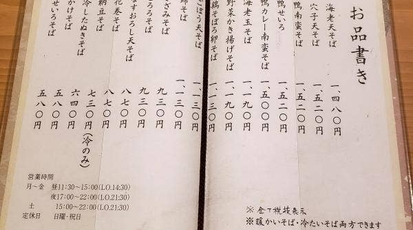 お品書き
海老天そば 一、四八〇円
穴子天そば 一、五二〇円
鴨南蛮そば 一、五二〇円
鴨せいろ 一、五二〇円
鴨カレー南蛮そば
海老玉そば 一、一九〇円
野菜かき揚げそば 一、一九〇円
鶏そぼろ卵そば 一、一三〇円
ぼう天そば 一、一三〇円
そば 一、一三〇円
ざみそば 九三〇円
ろろそば 九三〇円
すおろし天そば 八七〇円
花巻そば 八七〇円
納豆そば 七三〇円
冷したぬきそば 七三〇円(冷のみ)
かけそば 六四〇円
せいろそば 五八〇円
五八〇円
営業時間
月～金 昼11:30～15:00(L.O.14:30)
夜17:00～22:00(L.O.21:30)
土 15:00～22:00(L.O.21:30)
定休日 日曜・祝日
※全て税抜表示
※暖かいそば・冷たいそば両方できます